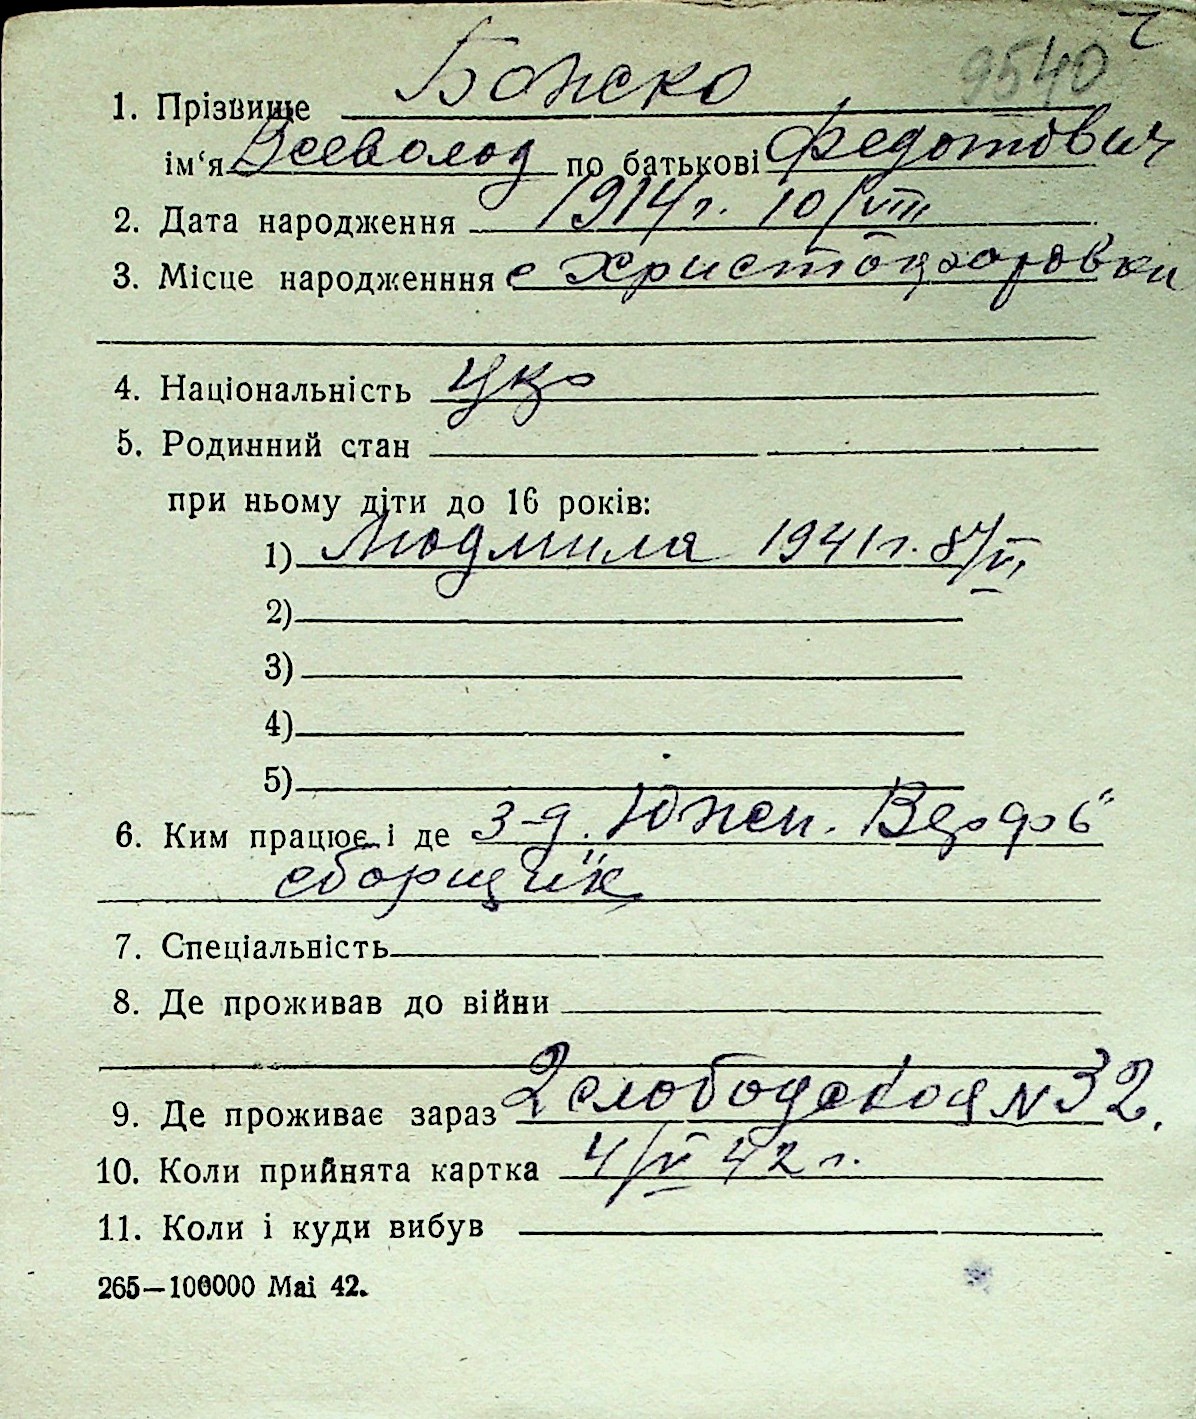 9540
1. Прізвище Божко
ім‘я Всеволод по батькові Федотович
2. Дата народження 1914 г. 10/VIII
3. Місце народженння с Христофоровки
4. Національність Укр
5. Родинний стан
при ньому діти до 16 років:
1) Людмила 1941 г.
2)
3)
4)
5)
6. Ким працює і де з-д. "Южн. Верфь"
сборщик
7. Спеціальність
8. Де проживав до війни
9. Де проживає зараз 2 слободская № 32.
10. Коли прийнята картка 4/V 42 г.
11. Коли і куди вибув
265—100000 Mai 42.